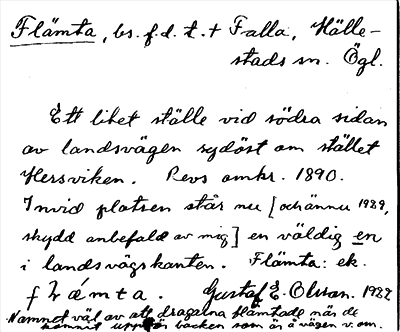 Flämta, bs. f. d. t. t Falla, Hälle-
stads sn. Ögl.
Ett litet ställe vid södra sidan
av landsvägen sydöst om stället
Hersviken. Revs omkr. 1890.
Invid platsen står nu [och ännu 1929,
skydd anbefald av mig] en väldig en
i landsvägskanten. Flämta: ek.
Gustaf E. Olsson.
Namnet väl av att dragarna flämtade när de
kommit uppför backen som är å vägen v. om.